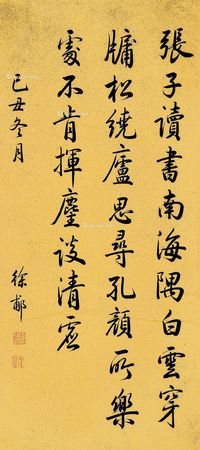 張子讀書南海隅白雲穿
牖松繞廬思尋孔顏所樂
處不肯揮麈談清虛
己丑冬月
徐郙